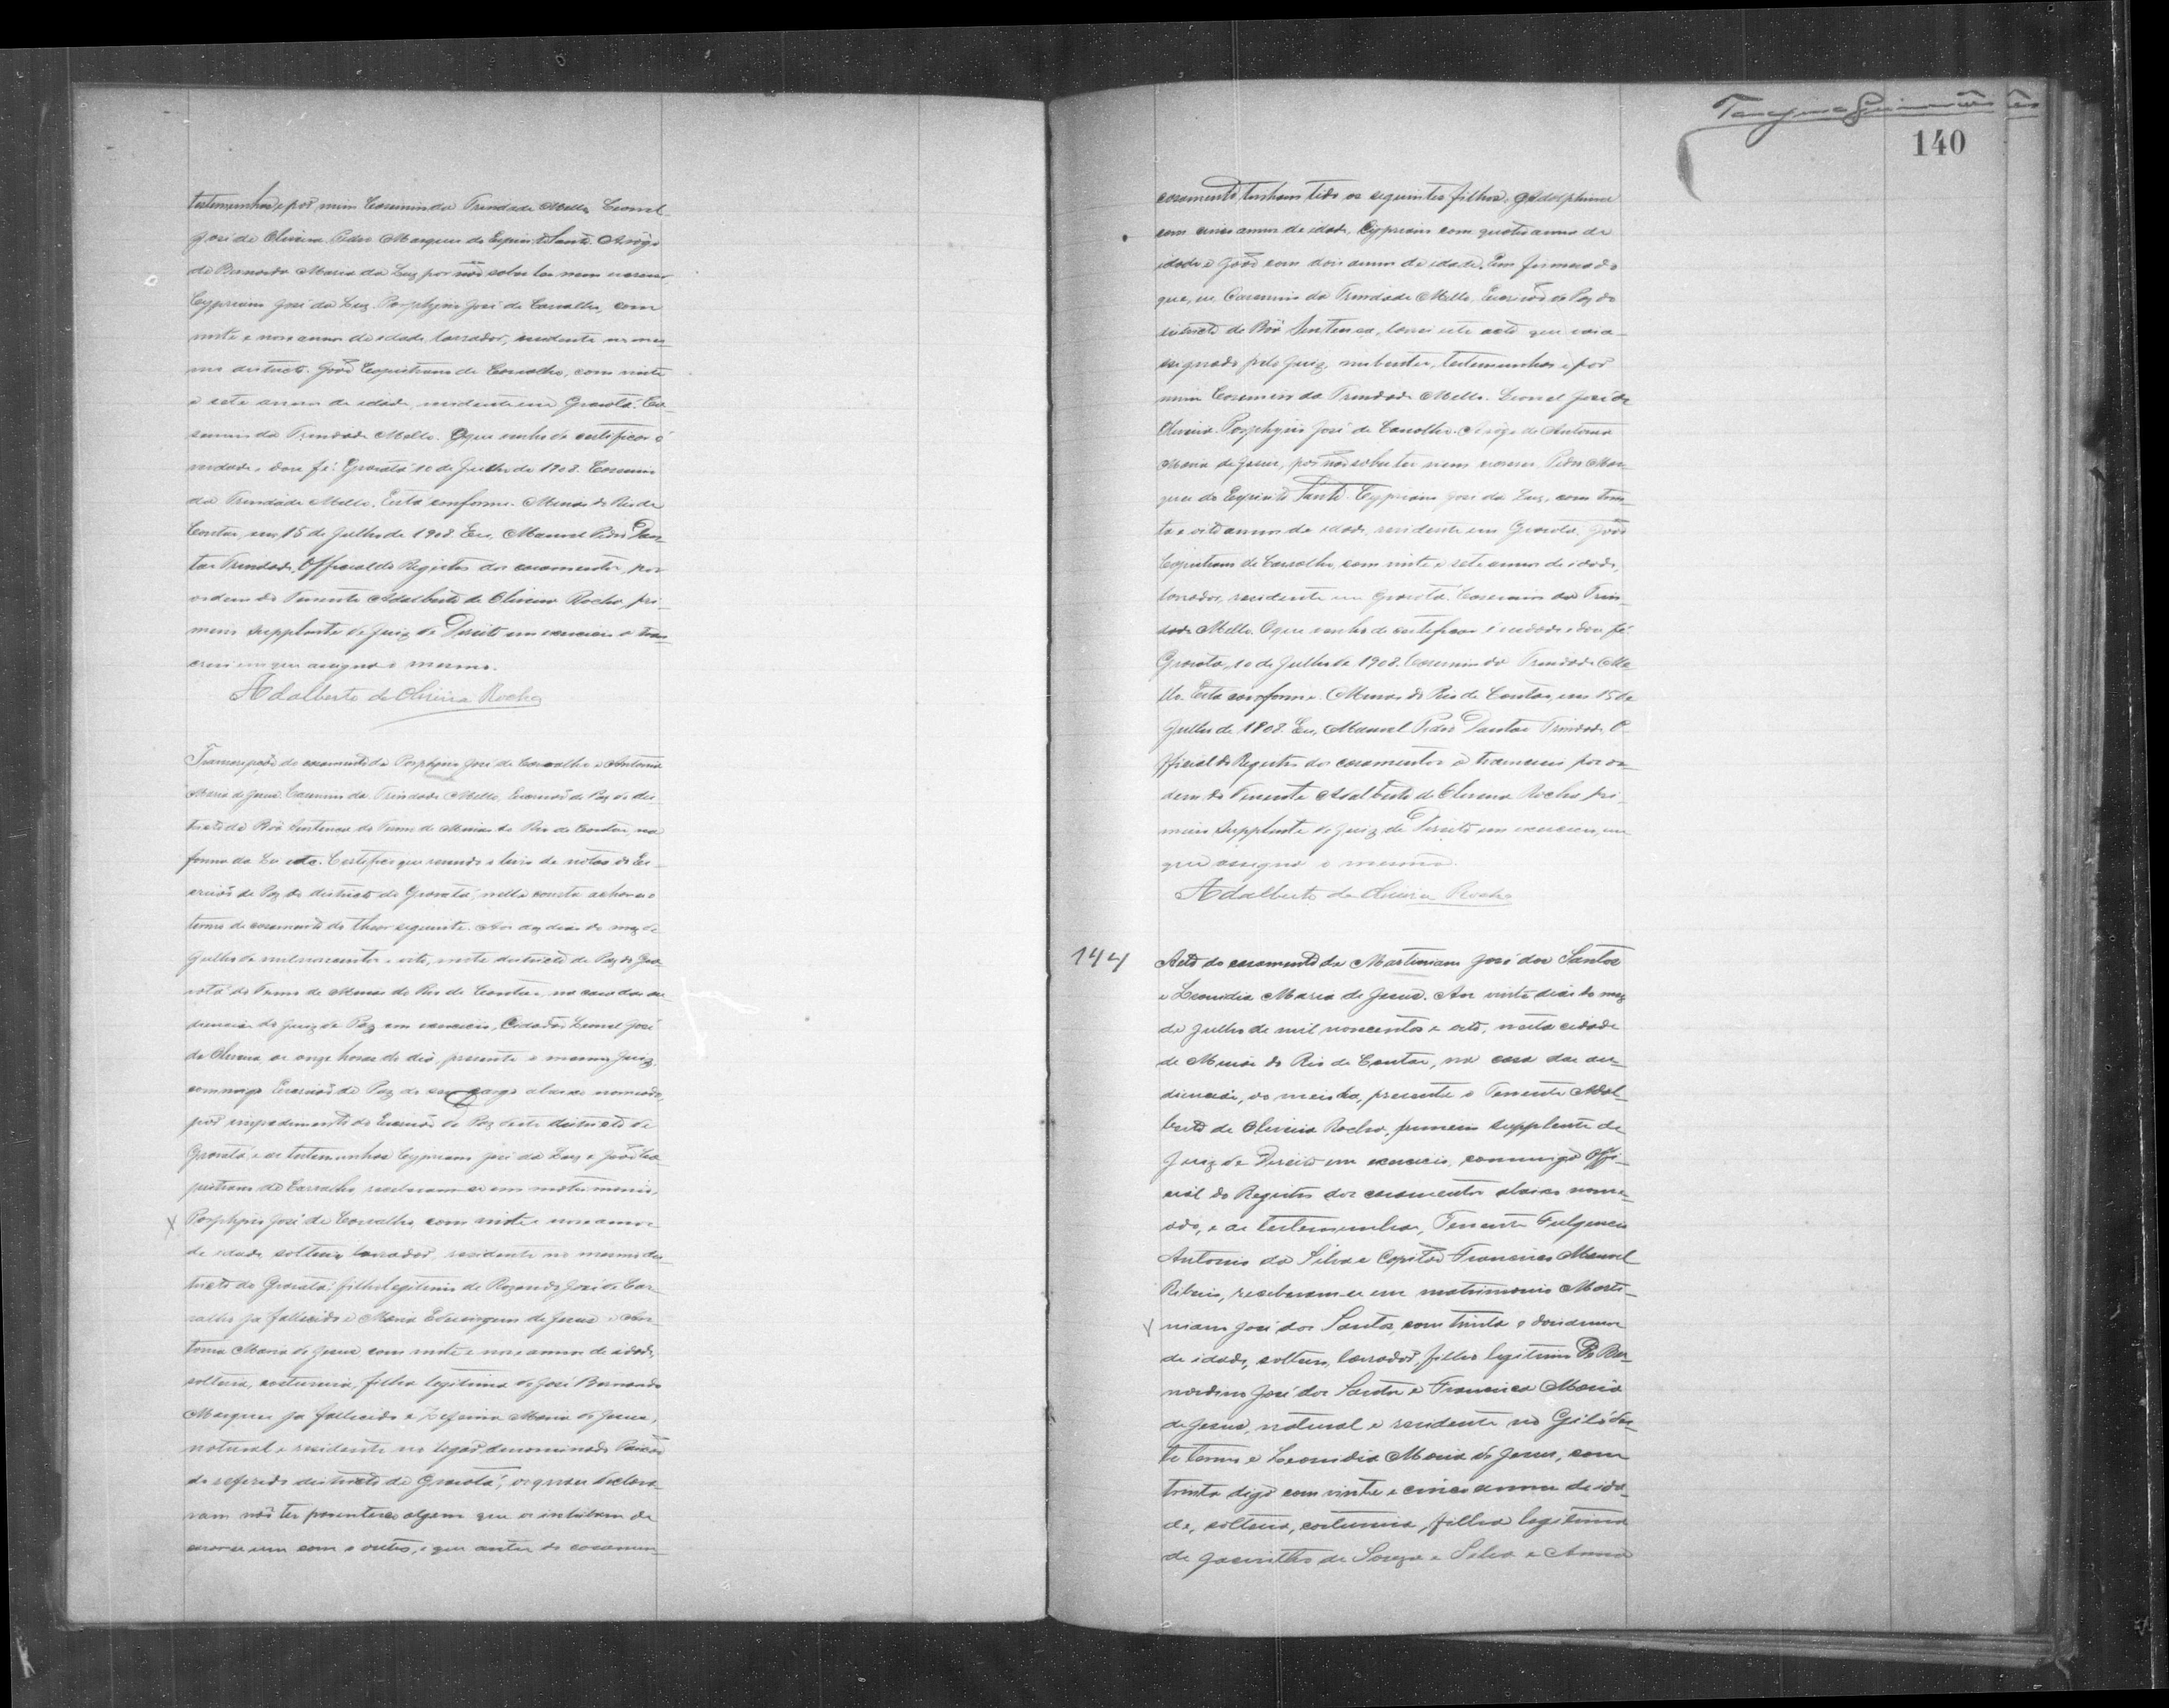 testemunhas e por mim Casemiro da Trindade Mello, Leonel
José de Oliveira. Pedro Marques do Espirito Santo. A rôgo
de Bernarda Maria da Luz, por não saber ler nem escrever
Cypriano José da Luz. Porphyrio José de Carvalho, com
vinte e nove annos de idade, lavrador, residente no mes-
mo districto. João Capistrano de Carvalho, com vinte
e sete annos de idade, residente em Gravatá. Ca-
semiro da Trindade Mello. O que venho de certificar é
verdade e dou fé. Gravatá 10 de Julho de 1908. Casemiro
da Trindade Mello. Está conforme. Minas do Rio de
Contas, em 15 de Julho de 1908. Eu, Manoel Pedro Dan-
tas Trindade, Official do Registro dos casamentos, por
ordem do Tenente Adalberto de Oliveira Rocha, pri-
meiro supplente de Juiz de Direito em exercicio o trans-
crevi em que assigna o mesmo.
Adalberto de Oliveira Rocha
Transcripção do casamento de Porphyrio José de Carvalho e Antonia
Maria de Jesus. Casemiro da Trindade Mello, Escrivão de Paz do dis-
tricto de Bôa Sentença do Termo de Minas do Rio de Contas, na
forma da Lei etc. Certifico que revendo o livro de notas do Es-
crivão de Paz do districto de Gravatá, nelle consta achar-se o
termo de casamento do theor seguinte. Aos dez dias do mez de
Julho de mil novecentos e oito, neste districto de Paz do Gra-
vatá do Termo de Minas do Rio de Contas, na casa das au-
diencias do Juiz de Paz em exercicio, Cidadão Leonel José
de Oliveira, as onze horas do dia, presente o mesmo Juiz,
commigo Escrivão de Paz do seu cargo abaixo nomeado,
por impedimento do Escrivão de Paz deste districto de
Gravatá, e as testemunhas Cypriano José da Luz e João Ca-
pistrano de Carvalho, receberam-se em matrimonio,
X Porphyrio José de Carvalho, com vinte e nove annos
de idade, solteiro, lavrador, residente no mesmo dis-
tricto de Gravatá, filho legitimo de Rozendo José de Car-
valho ja fallecido e Maria Eduvirgens de Jesus e An-
tonia Maria de Jesus, com vinte e nove annos de idade,
solteira, costureira, filha legitima de José Bernardo
Marques ja fallecido e Zeferina Maria de Jesus,
natural e residente no logar denominado
do referido districto de Gravatá, os quaes declara-
ram não ter parentesco algum que os inhibam de
casar-se um com o outro, e que antes do casamen-
Guimarães
140
casamento tinham tido os seguintes filhos: Adolphina
com cinco annos de idade, Cypriano com quatro annos de
idade e João com dois annos de idade. Em firmeza do
que, eu Casemiro da Trindade Mello, Escrivão de Paz do
districto de Bôa Sentença, lavrei este acto que vai as-
signado pelo Juiz, nubentes, testemunhas e por
mim Casemiro da Trindade Mello. Leonel José de
Oliveira. Porphyrio José de Carvalho. A rôgo de Antonia
Maria de Jesus, por não saber ler nem escrever. Pedro Mar-
ques do Espirito Santo. Cypriano José da Luz, com trin-
ta e oito annos de idade, residente em Gravatá. João
Capistrano de Carvalho, com vinte e sete annos de idade,
lavrador, residente em Gravatá. Casemiro da Trin-
dade Mello. O que venho de certificar é verdade e dou fé.
Gravatá, 10 de Julho de 1908. Casemiro da Trindade Me-
llo. Está conforme. Minas do Rio de Contas, em 15 de
Julho de 1908. Eu, Manoel Pedro Dantas Trindade O-
fficial do Registro dos casamentos o transcrevi por or-
dem do Tenente Adalberto de Oliveira Rocha pri-
meiro supplente de Juiz de Direito em exercicio, em
que assigna o mesmo.
Adalberto de Oliveira Rocha
144 Acto do casamento de Martiniano José dos Santos
e Leonidia Maria de Jesus. Aos vinte dias do mez
de Julho de mil novecentos e oito, nesta cidade
de Minas do Rio de Contas, na casa das au-
diencias, ao meio dia, presente o Tenente Adal-
berto de Oliveira Rocha, primeiro supplente de
Juiz de Direito em exercicio, commigo Offi-
cial do Registro dos casamentos abaixo nome-
ado, e as testemunhas, Tenente Fulgencio
Antonio da Silva e Capitão Francisco Manoel
Ribeiro, receberam-se em matrimonio Marti-
X niano José dos Santos, com trinta e dois annos
de idade, solteiro, lavrador, filho legitimo de Ber-
nardino José dos Santos e Francisca Maria
de Jesus, natural e residente no Giló des-
te termo e Leonidia Maria de Jesus, com
trinta digo com vinte e cinco annos de ida-
de, solteira, costureira, filha legitima
de Jacintho de Souza e Silva e Anna